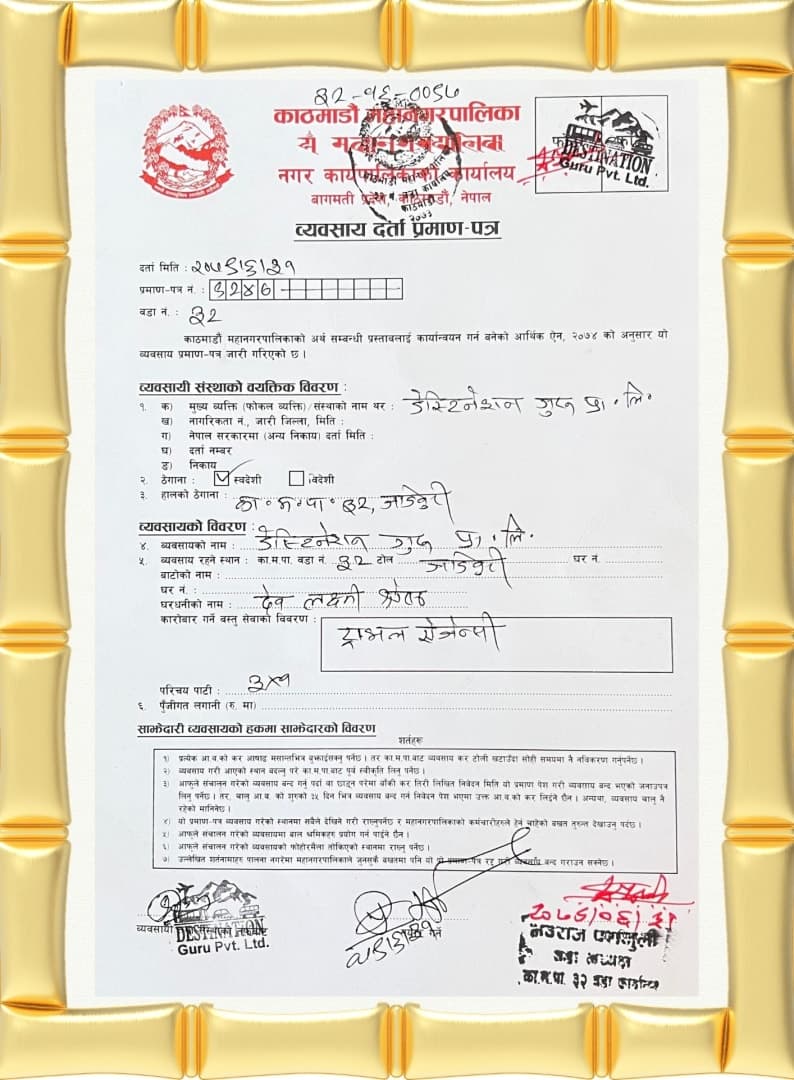 ३२-१६-००५७
काठमाडौं महानगरपालिका
नगर कार्यपालिकाको कार्यालय
बागमती प्रदेश, काठमाडौं, नेपाल
DESTINATION
Guru Pvt. Ltd.
व्यवसाय दर्ता प्रमाण-पत्र
दर्ता मिति :
प्रमाण-पत्र नं. :
वडा नं. : ३२
काठमाडौं महानगरपालिकाको अर्थ सम्बन्धी प्रस्तावलाई कार्यान्वयन गर्न बनेको आर्थिक ऐन, २०७४ को अनुसार यो
व्यवसाय प्रमाण-पत्र जारी गरिएको छ ।
व्यवसायी संस्थाको वयक्तिक विवरण :
१. क) मुख्य व्यक्ति (फोकल व्यक्ति)/संस्थाको नाम थर : डेस्टिनेशन गुरु प्रा. लि.
ख) नागरिकता नं., जारी जिल्ला, मिति :
ग) नेपाल सरकारमा (अन्य निकाय) दर्ता मिति :
घ) दर्ता नम्बर
ङ) निकाय
२. ठेगाना : स्वदेशी विदेशी
३. हालको ठेगाना : का.म.पा. ३२, जडिबुटी
व्यवसायको विवरण :
४. व्यवसायको नाम : डेस्टिनेशन गुरु प्रा. लि.
५. व्यवसाय रहने स्थान : का.म.पा. वडा नं. ३२ टोल जडिबुटी घर नं.
बाटोको नाम :
घर नं. :
घरधनीको नाम : देव लक्ष्मी श्रेष्ठ
कारोबार गर्ने वस्तु सेवाको विवरण : ट्राभल एजेन्सी
परिचय पाटी : ३x१
६. पुँजीगत लगानी (रु. मा)
साझेदारी व्यवसायको हकमा साझेदारको विवरण
शर्तहरू
१) प्रत्येक आ.व.को कर आषाढ मसान्तभित्र बुझाईसक्नु पर्नेछ । तर का.म.पा.बाट व्यवसाय कर टोली खटाउँदा सोही समयमा नै नविकरण गर्नुपर्नेछ ।
२) व्यवसाय गरी आएको स्थान बदल्नु परे का.म.पा.बाट पूर्व स्वीकृति लिनु पर्नेछ ।
३) आफूले संचालन गरेको व्यवसाय बन्द गर्नु पर्दा वा छाड्नु परेमा बाँकी कर तिरी लिखित निवेदन मिति यो प्रमाण पेश गरी व्यवसाय बन्द भएको जनाउपत्र
लिनु पर्नेछ । तर, चालु आ.व. को शुरुको ३५ दिन भित्र व्यवसाय बन्द गर्न निवेदन पेश भएमा उक्त आ.व.को कर लिईने छैन । अन्यथा, व्यवसाय चालु नै
रहेको मानिनेछ ।
४) यो प्रमाण-पत्र व्यवसाय गरेको स्थानमा सबैले देखिने गरी राख्नुपर्नेछ र महानगरपालिकाको कर्मचारीहरुले हेर्न चाहेको बखत तुरुन्त देखाउनु पर्दछ ।
५) आफूले संचालन गरेको व्यवसायमा बाल श्रमिकहरु प्रयोग गर्न पाईने छैन ।
६) आफूले संचालन गरेको व्यवसायको फोहोरमैला तोकिएको स्थानमा राख्नु पर्नेछ ।
७) उल्लेखित शर्तनामाहरु पालना नगरेमा महानगरपालिकाले जुनसुकै बखतमा पनि यो प्रमाण-पत्र रद्द गरी व्यवसाय बन्द गराउन सक्नेछ ।
DESTINATION
Guru Pvt. Ltd.
नवराज पराजुली
वडा अध्यक्ष
का.म.पा. ३२ वडा कार्यालय